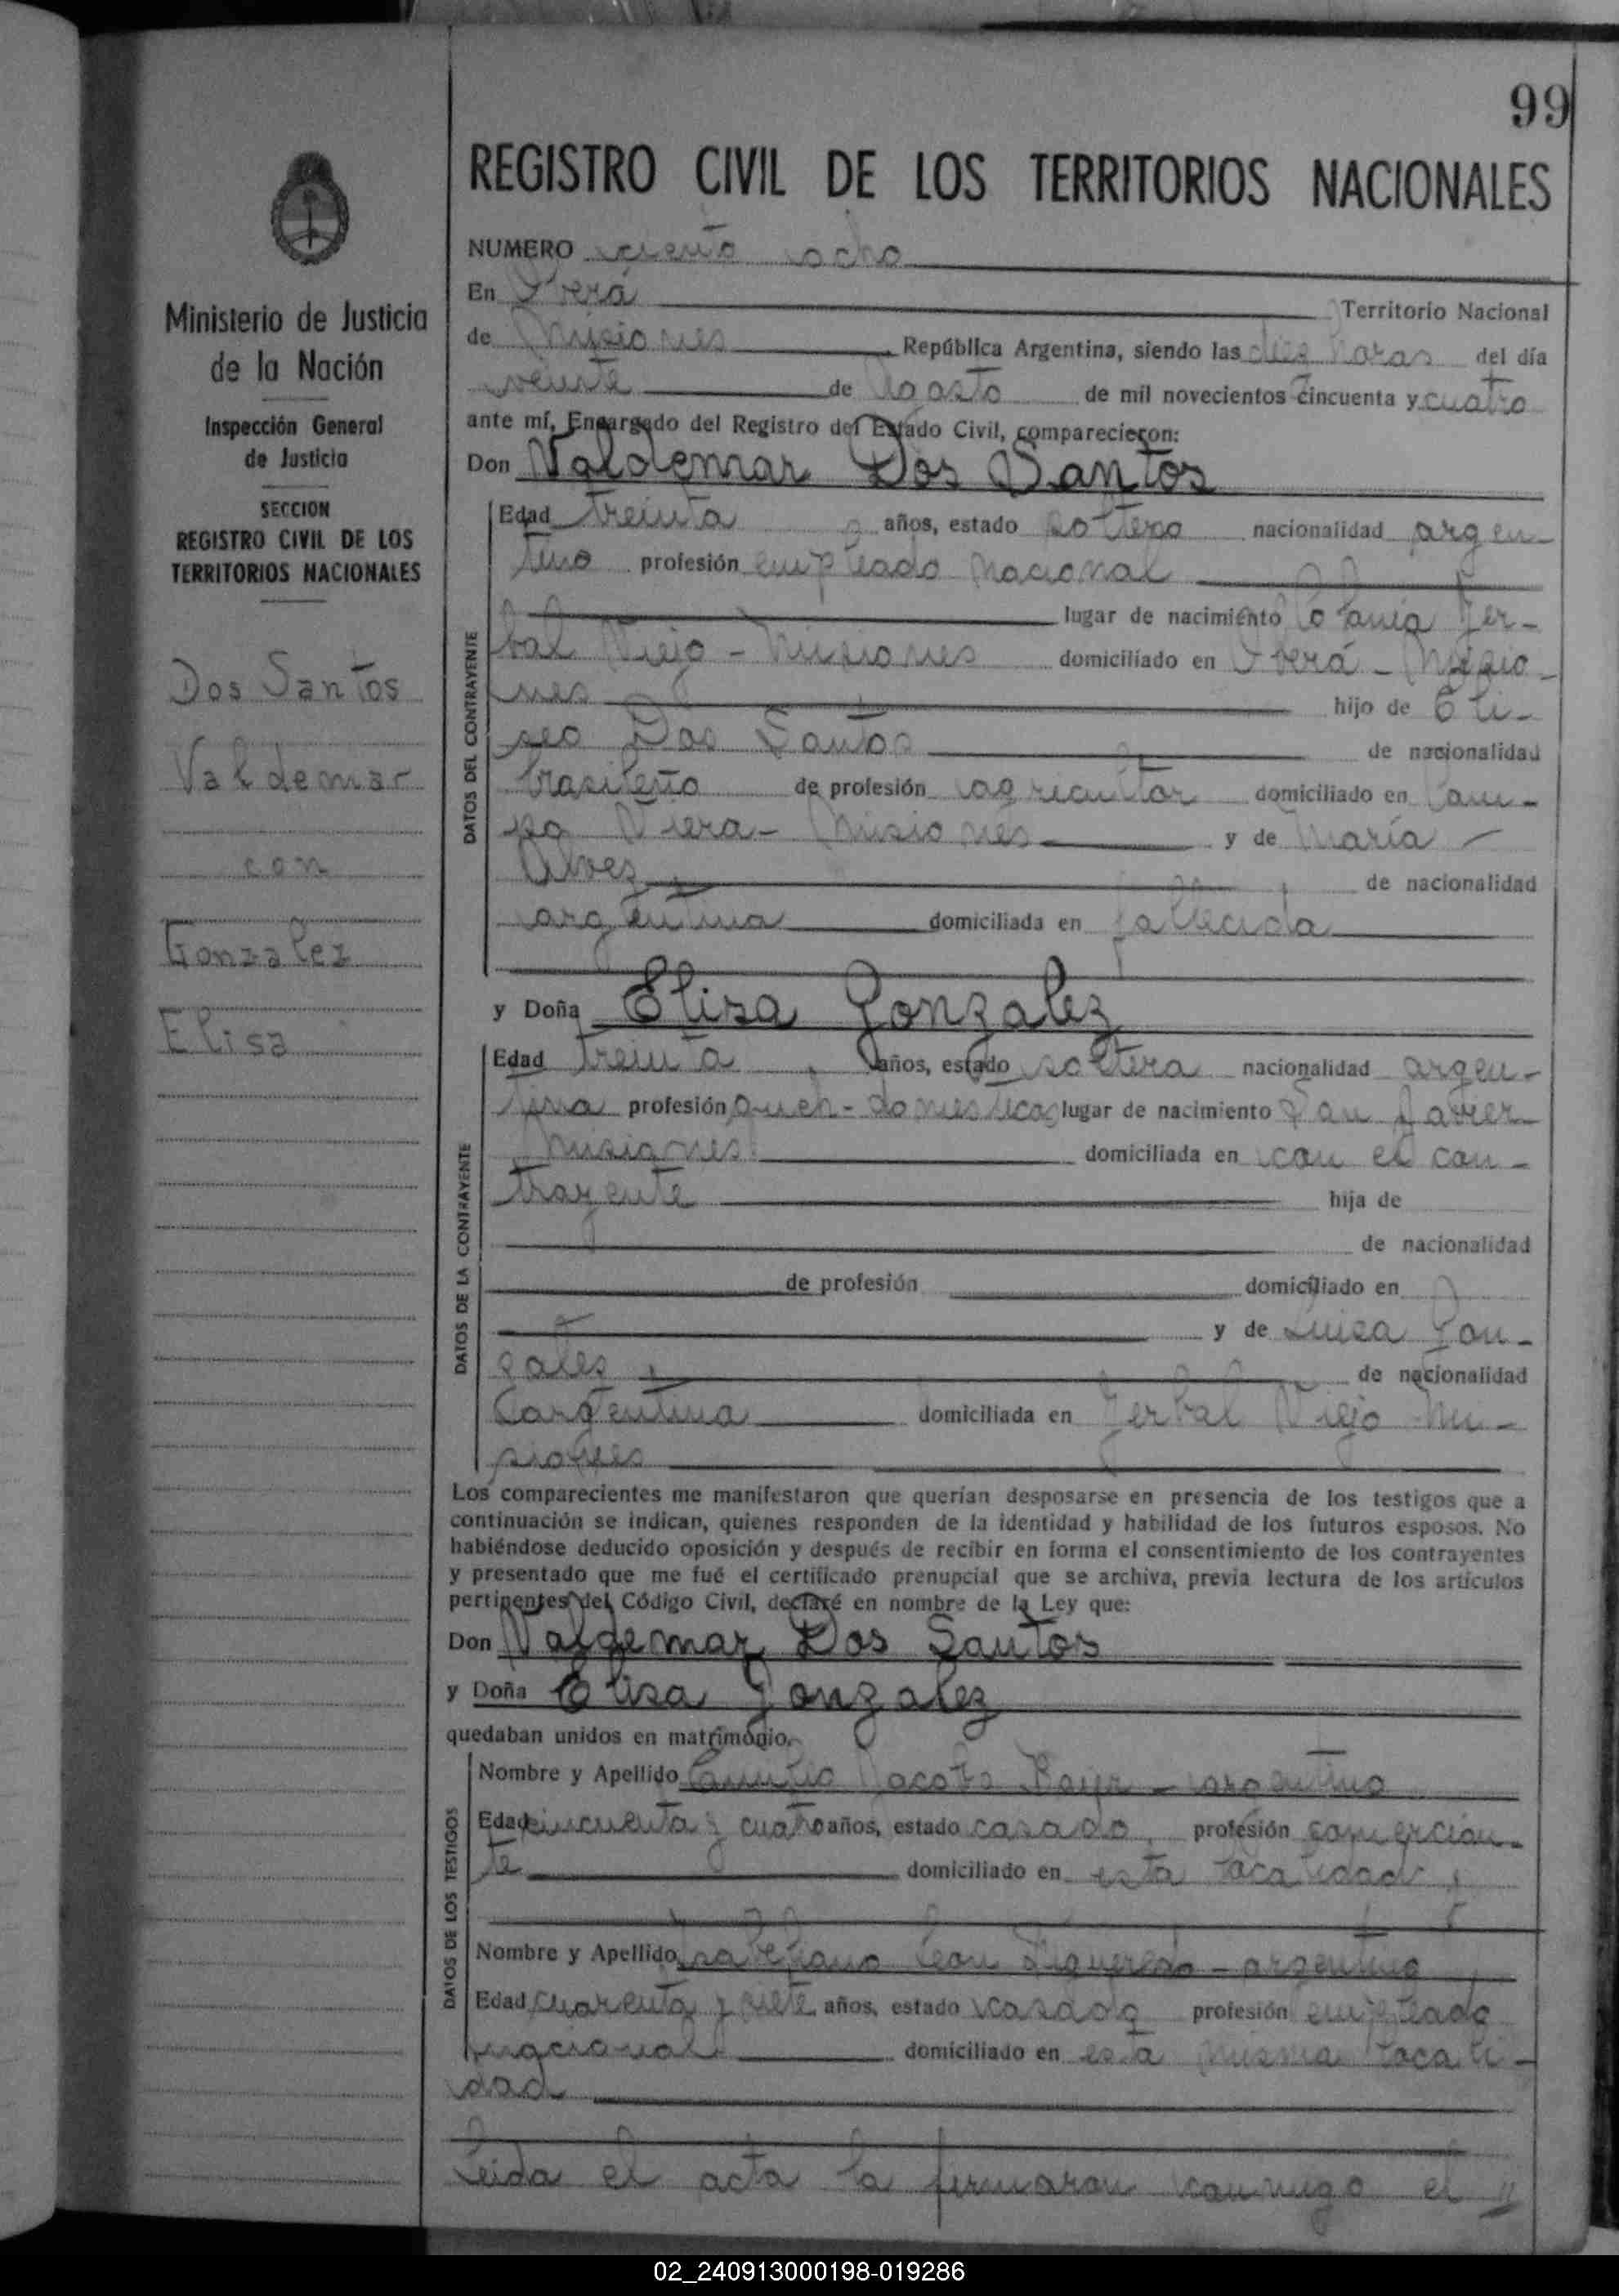 99
REGISTRO CIVIL DE LOS TERRITORIOS NACIONALES
Ministerio de Justicia
de la Nación
Inspección General
de Justicia
SECCION
REGISTRO CIVIL DE LOS
TERRITORIOS NACIONALES
Dos Santos
Valdemar
con
Gonzalez
Elisa
NUMERO ciento ocho
En Oberá Territorio Nacional
de Misiones República Argentina, siendo las diez horas del día
veinte de Agosto de mil novecientos cincuenta y cuatro
ante mí, Encargado del Registro del Estado Civil, comparecieron:
Don Valdemar Dos Santos
DATOS DEL CONTRAYENTE
Edad treinta años, estado soltero nacionalidad argen-
tino profesión empleado nacional
lugar de nacimiento Colonia Yer-
bal Viejo - Misiones domiciliado en Oberá - Misio-
nes hijo de Eli-
seo Dos Santos de nacionalidad
brasileño de profesión agricultor domiciliado en Cam-
po Viera - Misiones y de María
Alvez, de nacionalidad
argentina domiciliada en fallecida
y Doña Elisa Gonzalez
DATOS DE LA CONTRAYENTE
Edad treinta años, estado soltera nacionalidad argen-
tina profesión queh-domesticos lugar de nacimiento San Javier
Misiones domiciliada en con el con-
trayente hija de
de nacionalidad
de profesión domiciliado en
y de Luisa Gon-
zales, de nacionalidad
argentina domiciliada en Yerbal Viejo Mi-
siones
Los comparecientes me manifestaron que querían desposarse en presencia de los testigos que a
continuación se indican, quienes responden de la identidad y habilidad de los futuros esposos. No
habiéndose deducido oposición y después de recibir en forma el consentimiento de los contrayentes
y presentado que me fué el certificado prenupcial que se archiva, previa lectura de los artículos
pertinentes del Código Civil, declaré en nombre de la Ley que:
Don Valdemar Dos Santos
y Doña Elisa Gonzalez
quedaban unidos en matrimonio.
DATOS DE LOS TESTIGOS
Nombre y Apellido Jacobo - argentino
Edad cincuenta y cuatro años, estado casado, profesión comercian-
te domiciliado en esta localidad,
Nombre y Apellido Leon Figueredo - argentino
Edad cuarenta y siete años, estado casado profesión empleado
nacional domiciliado en esta misma locali-
dad
Leida el acta la firmaron conmigo el //
02_240913000198-019286